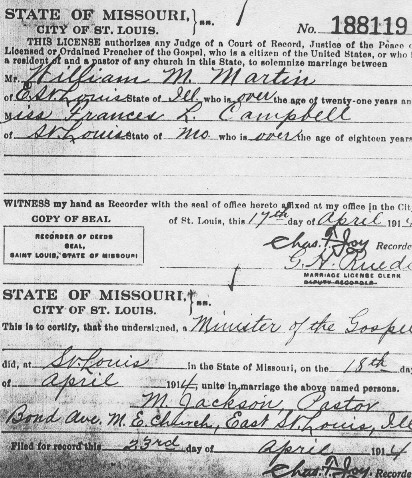 STATE OF MISSOURI, } ss. No. 188119
CITY OF ST. LOUIS.
THIS LICENSE authorizes any Judge of a Court of Record, Justice of the Peace o
Licensed or Ordained Preacher of the Gospel, who is a citizen of the United States, or who i
a resident of and a pastor of any church in this State, to solemnize marriage between
Mr. William M. Martin
of E. St. Louis State of Ill who is over the age of twenty-one years an
Miss Frances L. Campbell
of St. Louis State of Mo who is over the age of eighteen years
WITNESS my hand as Recorder with the seal of office hereto affixed at my office in the Cit
COPY OF SEAL of St. Louis, this 17th day of April 1914
RECORDER OF DEEDS
SEAL,
SAINT LOUIS, STATE OF MISSOURI
Chas. F. Joy Recorde
MARRIAGE LICENSE CLERK
DEPUTY RECORDER
STATE OF MISSOURI, } ss.
CITY OF ST. LOUIS.
This is to certify, that the undersigned, a Minister of the Gospel
did, at St. Louis in the State of Missouri, on the 18th day
of April 1914 unite in marriage the above named persons.
M. Jackson Pastor
Bond Ave. M. E. Church, East St. Louis, Ill
Filed for record this 23rd day of April 1914
Chas. F. Joy, Recorde